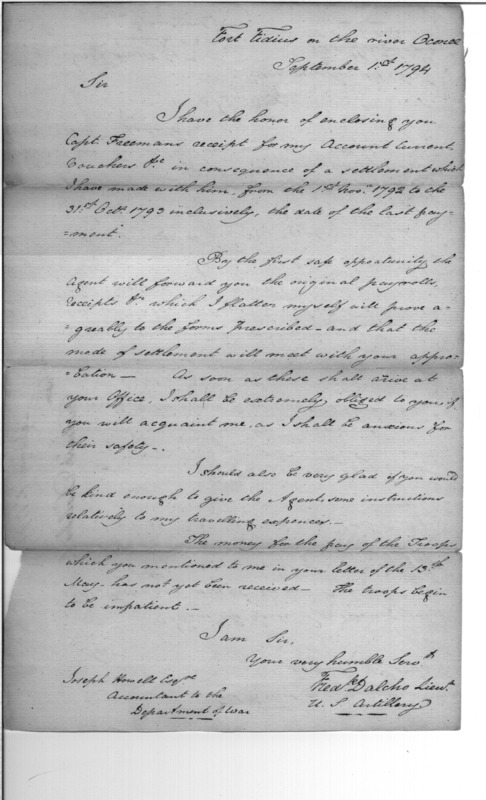 Fort Fidius on the river Oconee
September 1.st 1794
Sir
I have the honor of enclosing you
Capt. Freemans receipt for my Account Current,
Vouchers &c. in consequence of a settlement which
I have made with him, from the 1st Nov.r 1792 to the
31.st Oct.r 1793 inclusively, the date of the last pay-
=ment.
By the first safe oppertunity the
Agent will forward you the original payrolls,
receipts &c. which I flatter myself will prove a-
=greably to the forms prescribed - and that the
mode of settlement will meet with your appro-
=bation — As soon as these shall arive at
your Office, I shall be extremely obliged to you, if
you will acquaint me, as I shall be anxious for
their safety -.
I should also be very glad if you would
be kind enough to give the Agent some instructions
relatively to my travelling expences. —
The money for the pay of the Troops
which you mentioned to me in your letter of the 13th
May - has not yet been received — the troops begin
to be impatient. —
I am Sir,
Your very humble Serv.t
Fred.k Dalcho Lieu.t
U. S Artillery
Joseph Howell Esq.re
Accountant to the
Department of War